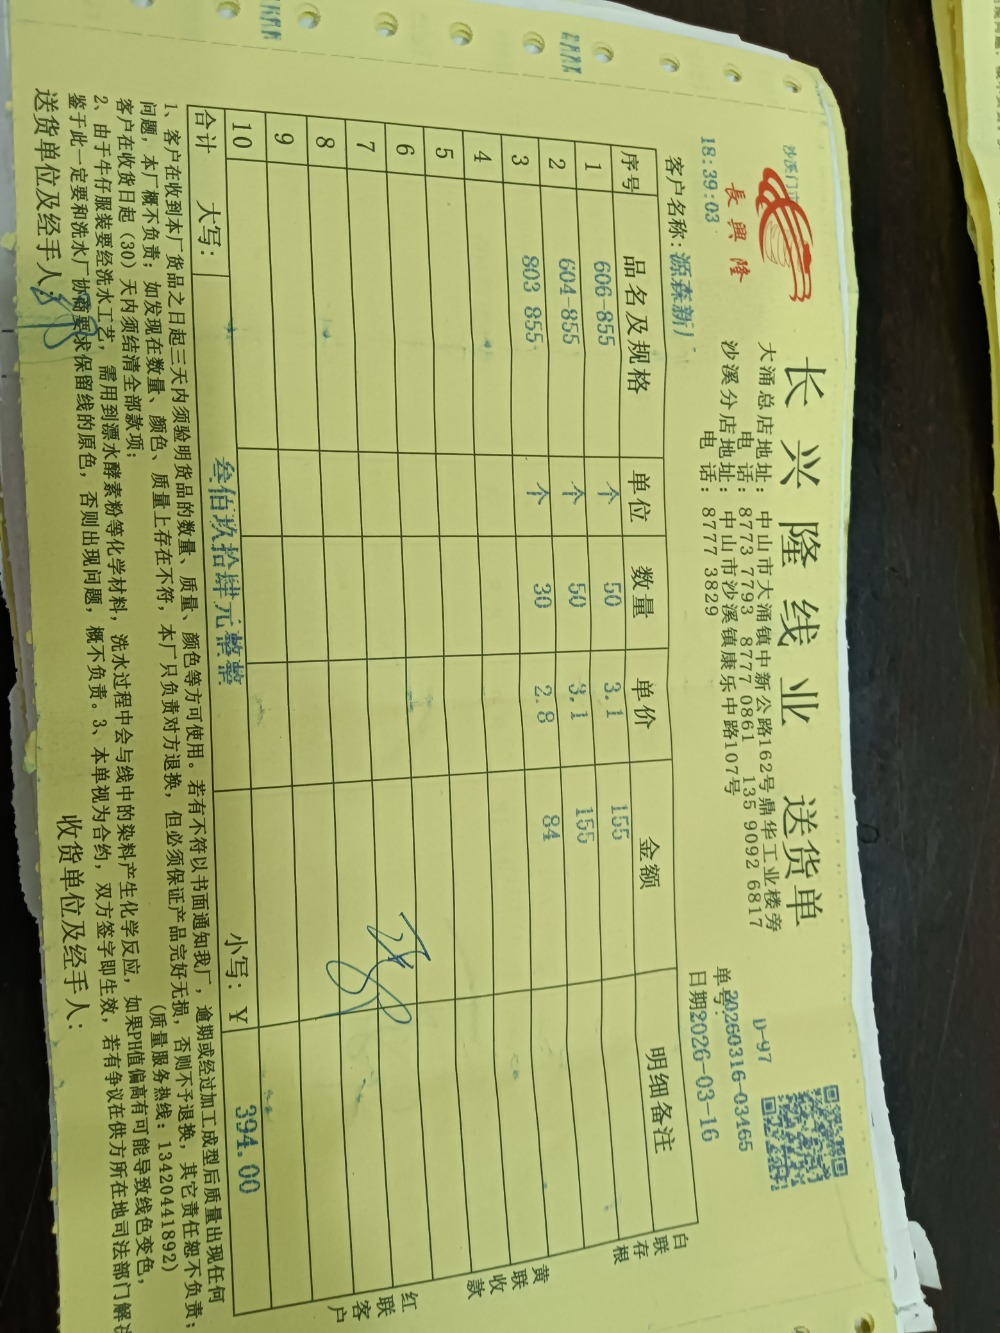 長興隆
长兴隆线业 送货单
大涌总店地址：中山市大涌镇中新公路162号鼎华工业楼旁
电 话：8773 7793 8777 0861 135 9092 6817
沙溪分店地址：中山市沙溪镇康乐中路107号
电 话：8777 3829
沙溪门
D-97
单号20260316-03465
18:39:03
日期2026-03-16
客户名称：源森新厂
序号 品名及规格 单位 数量 单价 金额 明细备注
1 606-855 个 50 3.1 155
2 604-855 个 50 3.1 155
3 803 855 个 30 2.8 84
4
5
6
7
8
9
10
合计 大写： 叁佰玖拾肆元整整 小写：￥ 394.00
白联存根
黄联收款
红联客户
1、客户在收到本厂货品之日起三天内须验明货品的数量、质量、颜色等方可使用。若有不符以书面通知我厂，逾期或经过加工成型后质量出现任何
问题，本厂概不负责；如发现在数量、颜色、质量上存在不符，本厂只负责对方退换，但必须保证产品完好无损，否则不予退换，其它责任恕不负责；
客户在收货日起（30）天内须结清全部款项； （质量服务热线：13420441892）
2、由于牛仔服装要经洗水工艺，需用到漂水酵素粉等化学材料，洗水过程中会与线中的染料产生化学反应，如果PH值偏高有可能导致线色变色，
鉴于此一定要和洗水厂协商要求保留线的原色，否则出现问题，概不负责。3、本单视为合约，双方签字即生效，若有争议在供方所在地司法部门解决
送货单位及经手人： 收货单位及经手人：